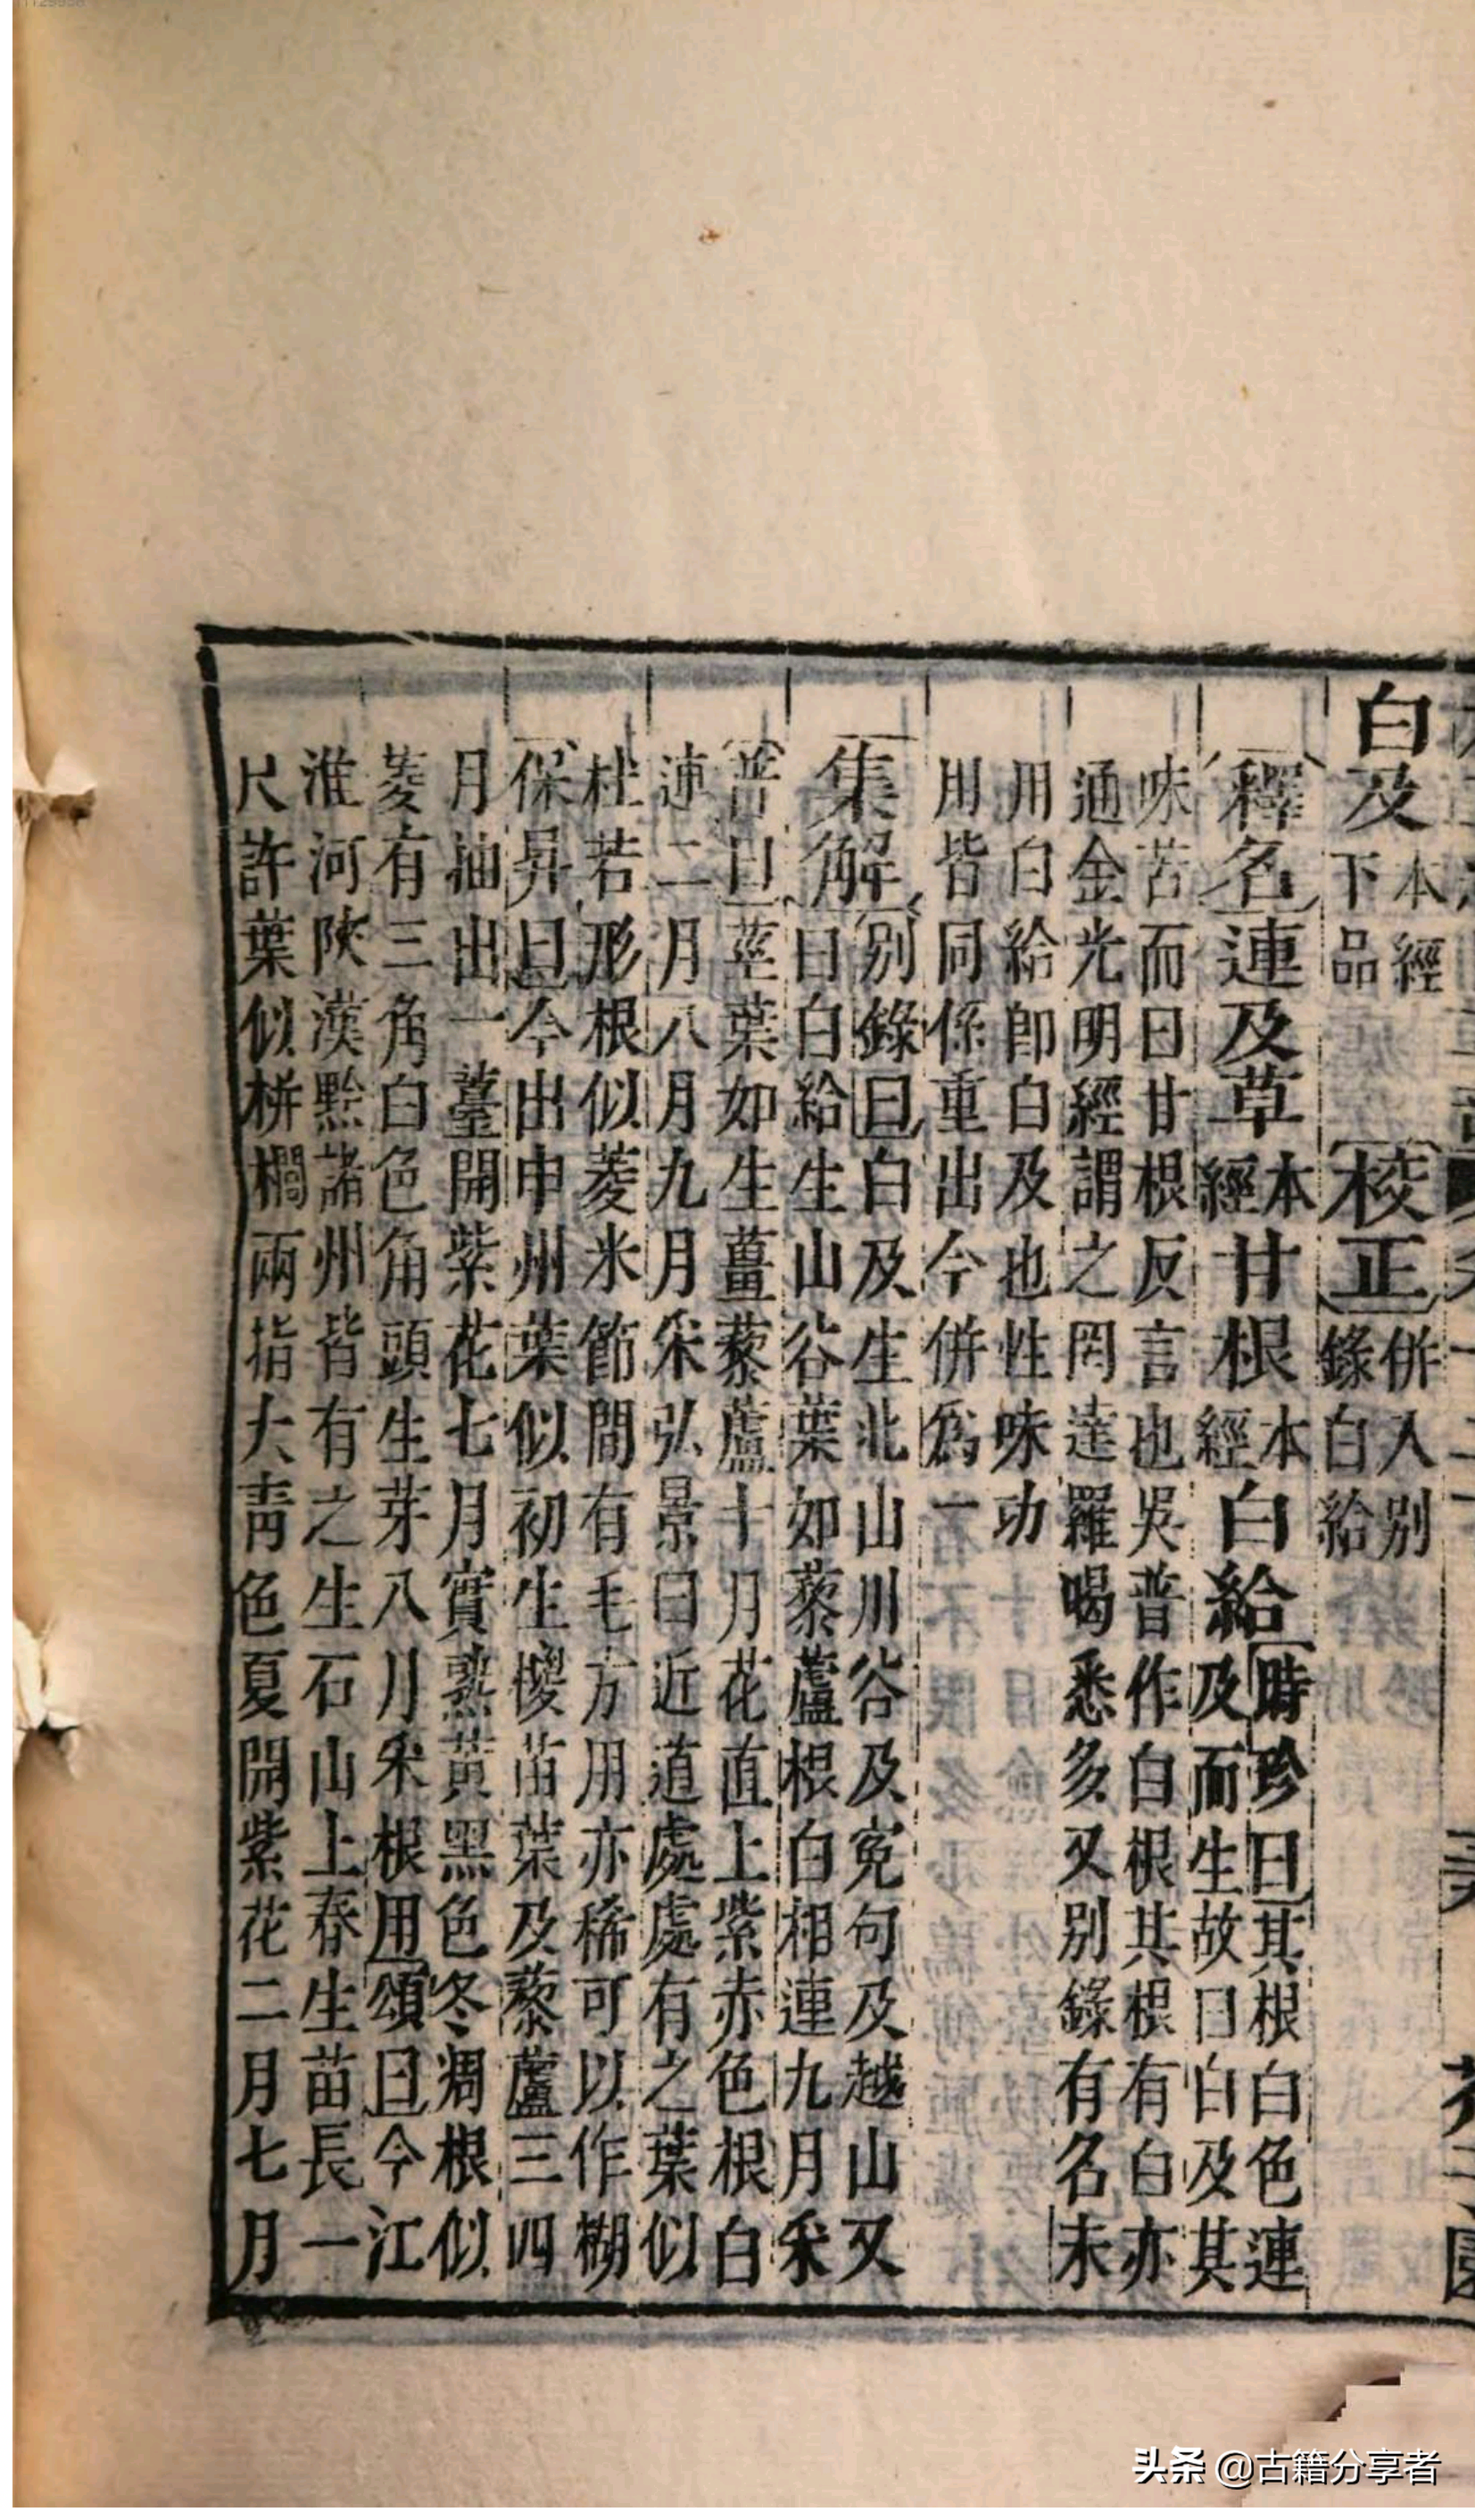 白及本經下品〔校正〕併入別錄白給
〔釋名〕連及草本經甘根本經白給〔時珍曰〕其根白色連
及而生故曰白及其
味苦而曰甘根反言也吳普作白根其根有白亦
通金光明經謂之罔達羅喝悉多又別錄有名未
用白給卽白及也性味功
用皆同係重出今併爲一
〔集解〕〔別錄曰〕白及生北山川谷及寃句及越山又
曰白給生山谷葉如藜蘆根白相連九月采
〔普曰〕莖葉如生薑藜蘆十月花直上紫赤色根白
連二月八月九月采弘景曰近道處處有之葉似
杜若形根似菱米節間有毛方用亦稀可以作糊
〔保昇曰〕今出申州葉似初生㯶苗葉及藜蘆三四
月抽出一薹開紫花七月實熟黃黑色冬凋根似
菱有三角白色角頭生芽八月采根用〔頌曰〕今江
淮河陝漢黔諸州皆有之生石山上春生苗長一
尺許葉似栟櫚兩指大靑色夏開紫花二月七月
頭条 @古籍分享者